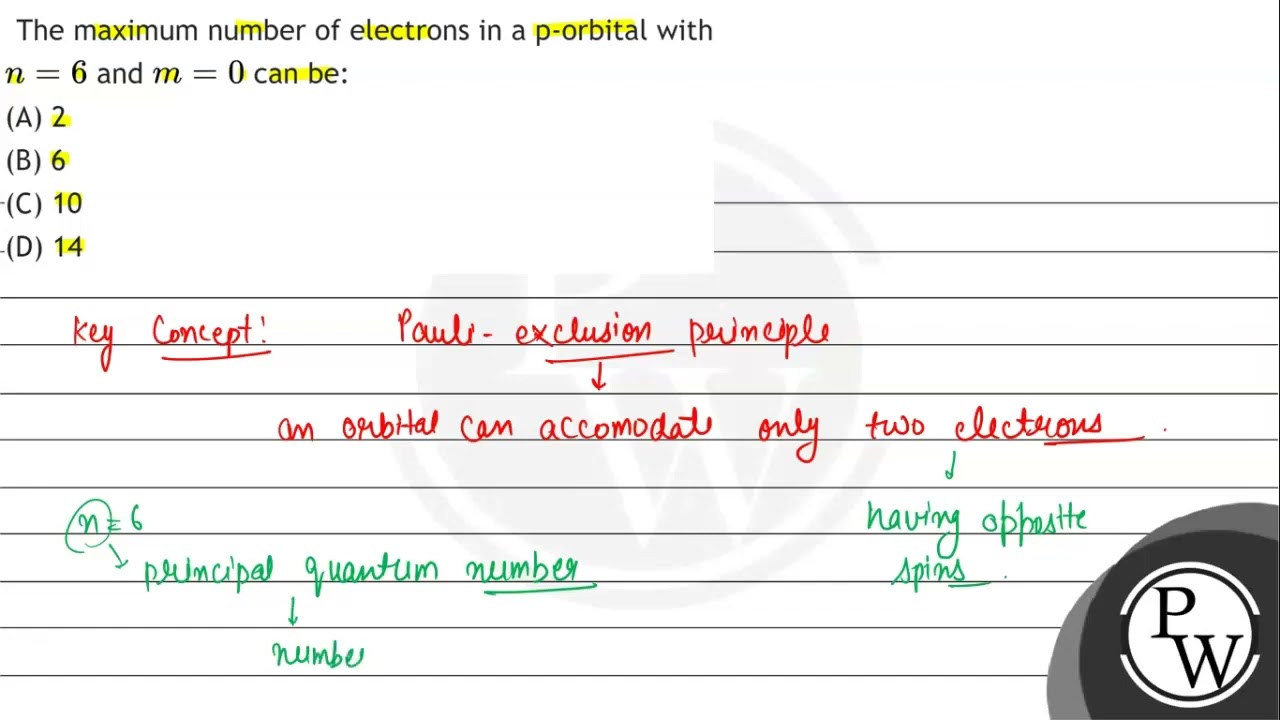 The maximum number of electrons in a p-orbital with
n = 6 and m = 0 can be:
(A) 2
(B) 6
(C) 10
(D) 14
Key Concept: Pauli - exclusion principle
↓
an orbital can accomodate only two electrons.
↓
n = 6 having opposite
principal quantum number spins.
↓
number
P
W